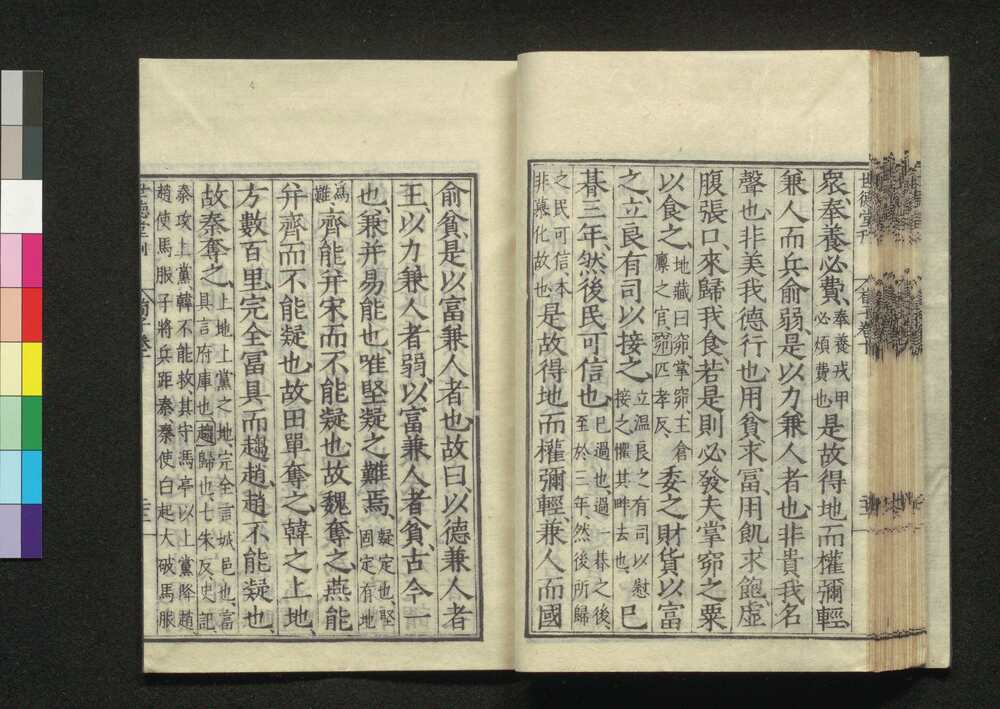 衆奉養必費奉養戎甲必煩費也是故得地而權彌輕
兼人而兵俞弱是以力兼人者也非貴我名
聲也非美我德行也用貧求富用飢求飽虛
腹張口來歸我食若是則必發夫掌窌之粟
以食之地藏曰窌掌窌主倉廪之官窌匹孝反委之財貨以富
之立良有司以接之立温良之有司以慰接之懼其畔去也已
朞三年然後民可信也已過也過一朞之後至於三年然後所歸
之民可信本非慕化故也是故得地而權彌輕兼人而國
俞貧是以富兼人者也故曰以德兼人者
王以力兼人者弱以富兼人者貧古今一
也兼并易能也唯堅凝之難焉凝定也堅固定有地
爲難齊能并宋而不能凝也故魏奪之燕能
并齊而不能凝也故田單奪之韓之上地
方數百里完全富具而趨趙趙不能凝也
故秦奪之上地上黨之地完全言城邑也富具言府庫也趨歸也七朱反史記
秦攻上黨韓不能救其守馮亭以上黨降趙
趙使馬服子將兵距秦秦使白起大破馬服
世德堂刊
荀子卷十
世德堂刊